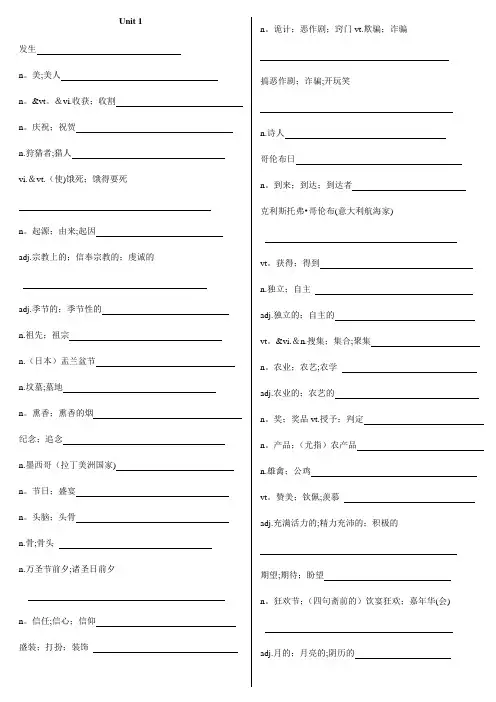 Unit 1
发生
n。美;美人
n。&vt。&vi.收获；收割
n。庆祝；祝贺
n.狩猎者;猎人
vi.&vt.（使)饿死；饿得要死
n。起源；由来;起因
adj.宗教上的；信奉宗教的；虔诚的
adj.季节的；季节性的
n.祖先；祖宗
n.（日本）盂兰盆节
n.坟墓;墓地
n。熏香；熏香的烟
纪念；追念
n.墨西哥（拉丁美洲国家)
n。节日；盛宴
n。头脑；头骨
n.骨;骨头
n.万圣节前夕;诸圣日前夕
n。信任;信心；信仰
盛装；打扮；装饰
n。诡计；恶作剧；窍门 vt.欺骗；诈骗
搞恶作剧；诈骗;开玩笑
n.诗人
哥伦布日
n。到来；到达；到达者
克利斯托弗•哥伦布(意大利航海家)
vt。获得；得到
n.独立；自主
adj.独立的；自主的
vt。&vi.＆n.搜集；集合;聚集
n。农业；农艺;农学
adj.农业的；农艺的
n。奖；奖品 vt.授予；判定
n。产品；(尤指）农产品
n.雄禽；公鸡
vt。赞美；钦佩;羡慕
adj.充满活力的;精力充沛的；积极的
期望;期待；盼望
n。狂欢节；(四旬斋前的）饮宴狂欢；嘉年华(会)
adj.月的；月亮的;阴历的